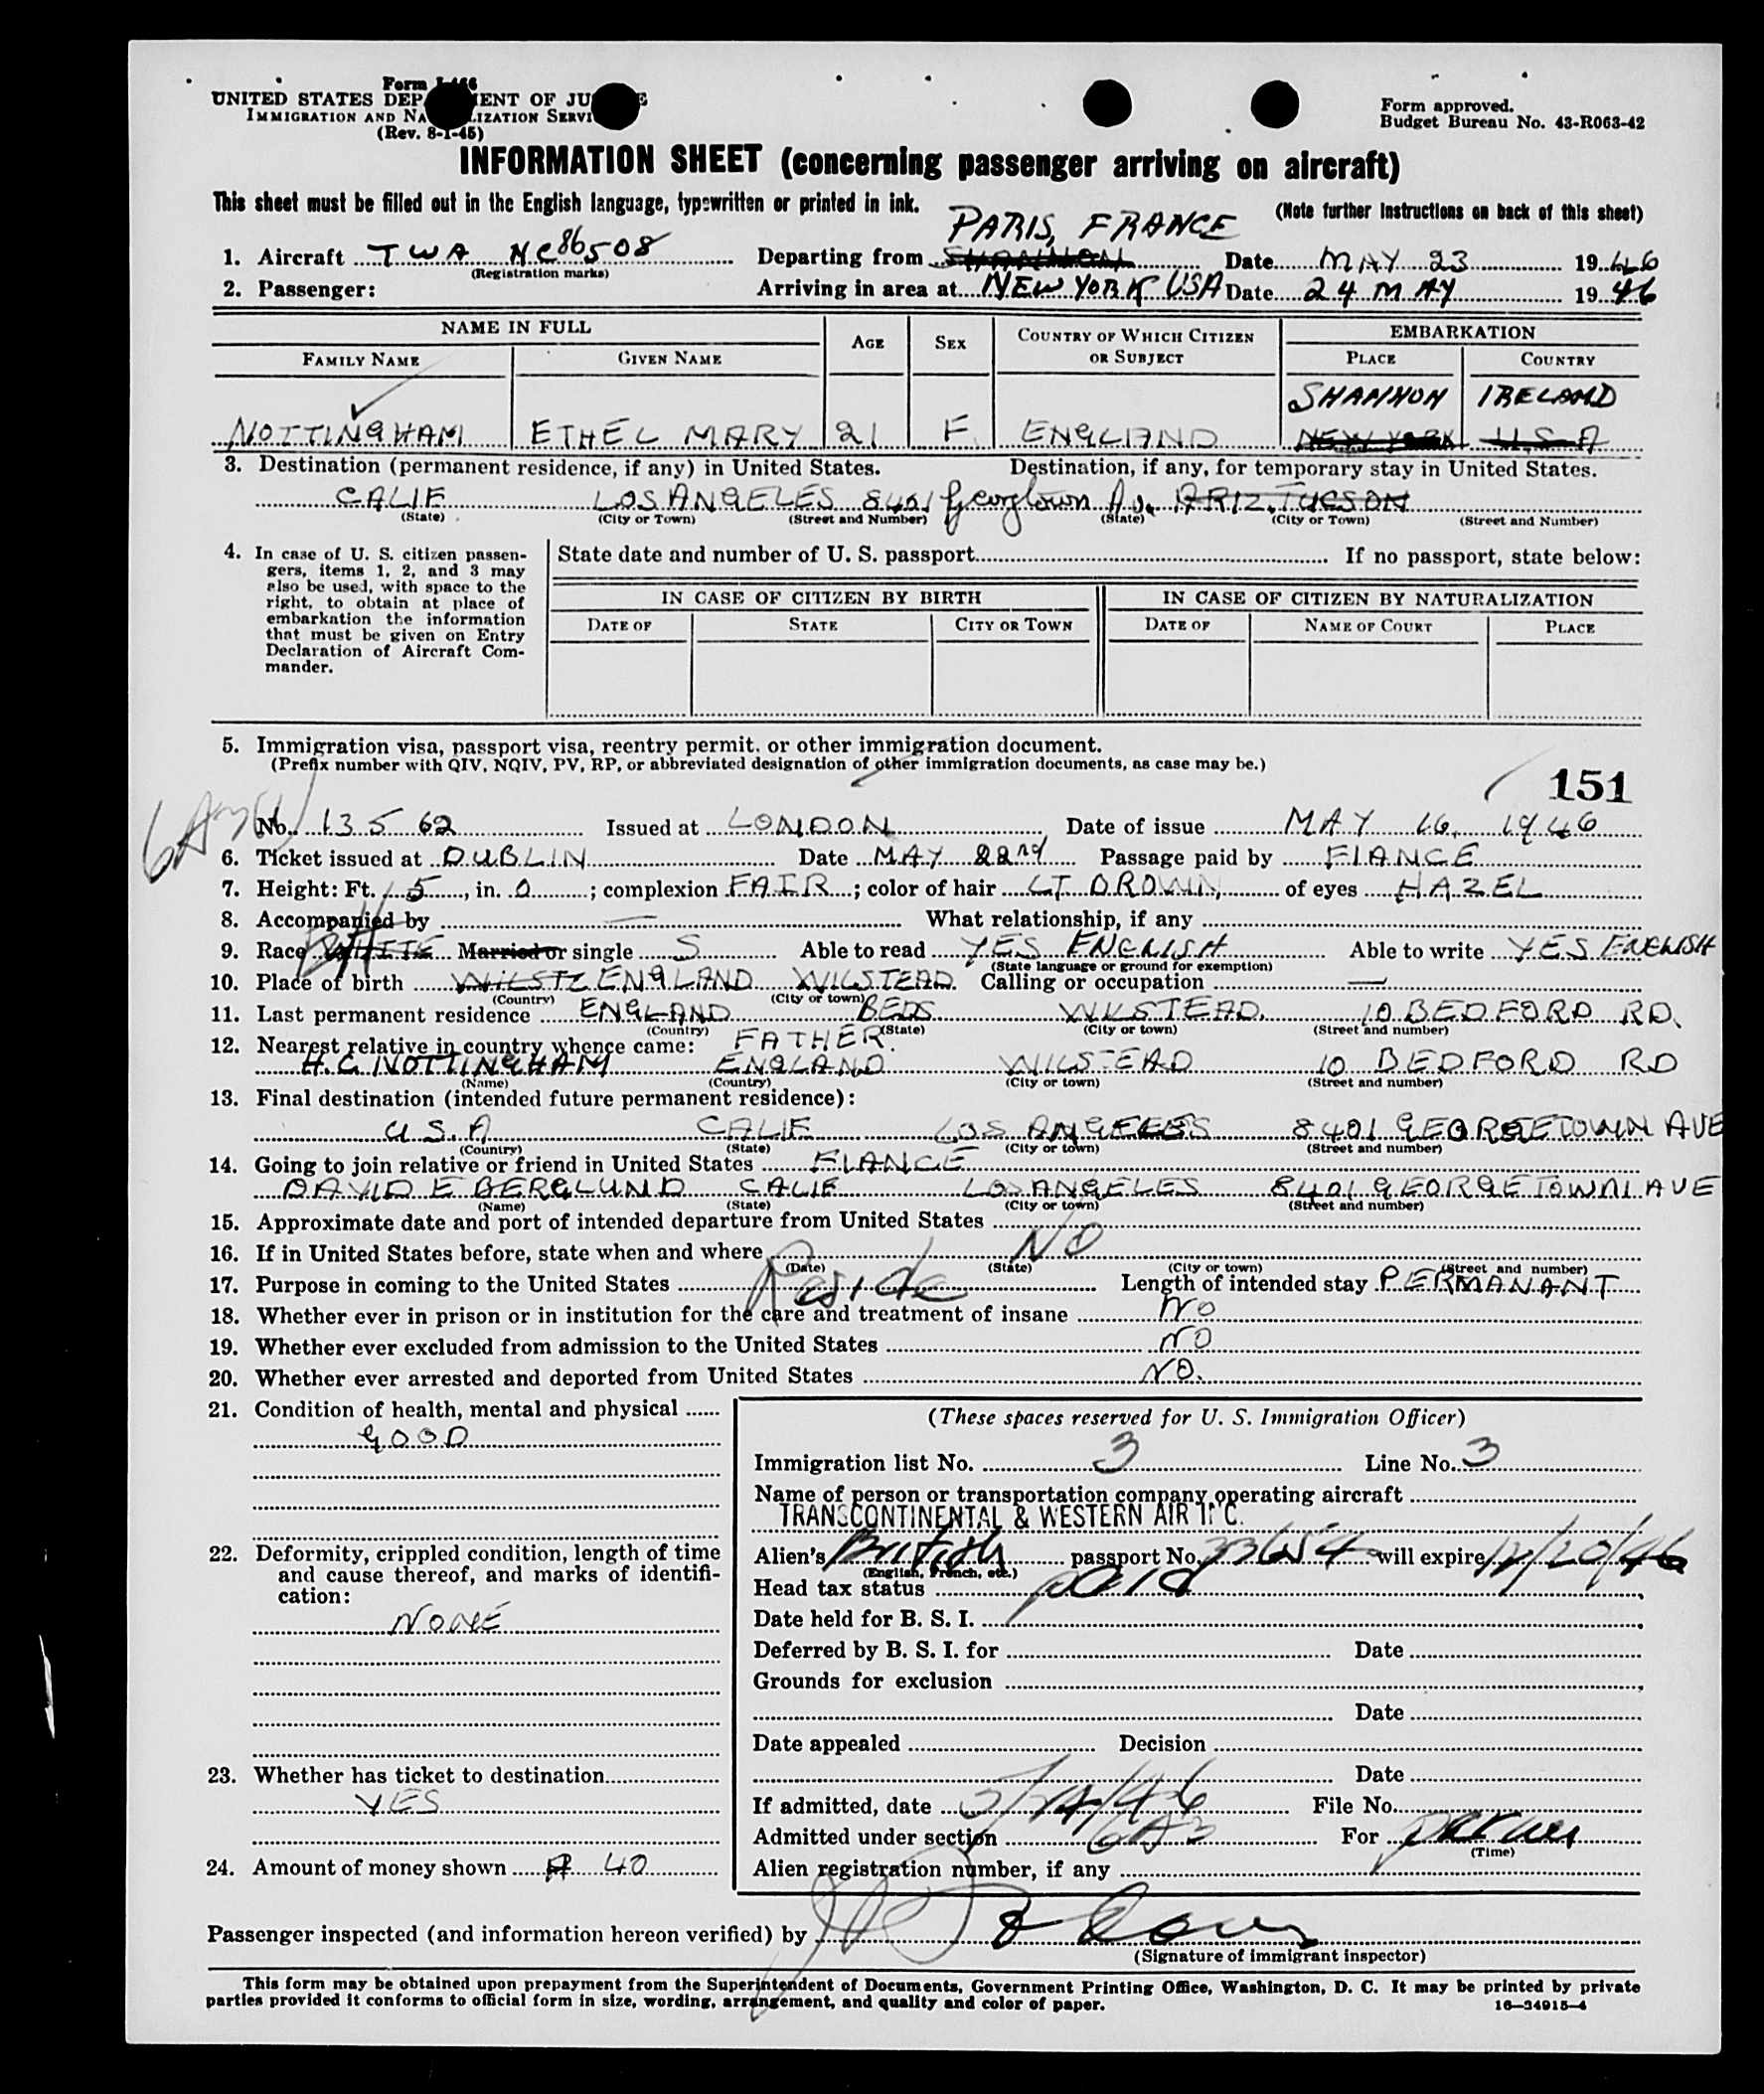 Form I-466
UNITED STATES DEP ENT OF JU E
IMMIGRATION AND NA LIZATION SERVI
(Rev. 8-1-45)
Form approved.
Budget Bureau No. 43-R063-42
INFORMATION SHEET (concerning passenger arriving on aircraft)
This sheet must be filled out in the English language, typewritten or printed in ink.
(Note further instructions on back of this sheet)
PARIS, FRANCE
1. Aircraft TWA NC86508 Departing from SHANNON Date MAY 23 1946
(Registration marks)
2. Passenger: Arriving in area at NEW YORK USA Date 24 MAY 1946
NAME IN FULL AGE SEX COUNTRY OF WHICH CITIZEN OR SUBJECT EMBARKATION
FAMILY NAME GIVEN NAME PLACE COUNTRY
SHANNON IRELAND
NOTTINGHAM ETHEL MARY 21 F. ENGLAND NEW YORK U.S.A
3. Destination (permanent residence, if any) in United States. Destination, if any, for temporary stay in United States.
CALIF LOS ANGELES 8401 Georgtown Av. ARIZ. TUCSON
(State) (City or Town) (Street and Number) (State) (City or Town) (Street and Number)
4. In case of U. S. citizen passen-
gers, items 1, 2, and 3 may
also be used, with space to the
right, to obtain at place of
embarkation the information
that must be given on Entry
Declaration of Aircraft Com-
mander.
State date and number of U. S. passport If no passport, state below:
IN CASE OF CITIZEN BY BIRTH IN CASE OF CITIZEN BY NATURALIZATION
DATE OF STATE CITY OR TOWN DATE OF NAME OF COURT PLACE
5. Immigration visa, passport visa, reentry permit, or other immigration document.
(Prefix number with QIV, NQIV, PV, RP, or abbreviated designation of other immigration documents, as case may be.)
151
No. 13562 Issued at LONDON Date of issue MAY 16, 1946
6. Ticket issued at DUBLIN Date MAY 22nd Passage paid by FIANCE
7. Height: Ft. 5, in. 0; complexion FAIR; color of hair LT BROWN, of eyes HAZEL
8. Accompanied by — What relationship, if any
9. Race WHITE Married or single S Able to read YES ENGLISH Able to write YES ENGLISH
(State language or ground for exemption)
10. Place of birth WILSTE ENGLAND WILSTEAD Calling or occupation —
(Country) (City or town)
11. Last permanent residence ENGLAND BEDS WILSTEAD. 10 BEDFORD RD.
(Country) (State) (City or town) (Street and number)
12. Nearest relative in country whence came: FATHER.
H.C NOTTINGHAM ENGLAND WILSTEAD 10 BEDFORD RD
(Name) (Country) (City or town) (Street and number)
13. Final destination (intended future permanent residence):
U.S.A CALIF LOS ANGELES 8401 GEORGETOWN AVE
(Country) (State) (City or town) (Street and number)
14. Going to join relative or friend in United States FIANCE
DAVID E BERGLUND CALIF LOS ANGELES 8401 GEORGETOWN AVE
(Name) (State) (City or town) (Street and number)
15. Approximate date and port of intended departure from United States
16. If in United States before, state when and where NO
(Date) (State) (City or town) (Street and number)
17. Purpose in coming to the United States Reside Length of intended stay PERMANANT
18. Whether ever in prison or in institution for the care and treatment of insane NO
19. Whether ever excluded from admission to the United States NO
20. Whether ever arrested and deported from United States NO.
21. Condition of health, mental and physical
GOOD
22. Deformity, crippled condition, length of time
and cause thereof, and marks of identifi-
cation:
NONE
23. Whether has ticket to destination
YES
24. Amount of money shown 40
(These spaces reserved for U. S. Immigration Officer)
Immigration list No. 3 Line No. 3
Name of person or transportation company operating aircraft
TRANSCONTINENTAL & WESTERN AIR INC.
Alien's British passport No. 33654 will expire 12/20/46
(English, French, etc.)
Head tax status paid
Date held for B. S. I.
Deferred by B. S. I. for Date
Grounds for exclusion
Date
Date appealed Decision
Date
If admitted, date 5/24/46 File No.
Admitted under section 6A3 For
(Time)
Alien registration number, if any
Passenger inspected (and information hereon verified) by
(Signature of immigrant inspector)
This form may be obtained upon prepayment from the Superintendent of Documents, Government Printing Office, Washington, D. C. It may be printed by private
parties provided it conforms to official form in size, wording, arrangement, and quality and color of paper. 16—34915-4